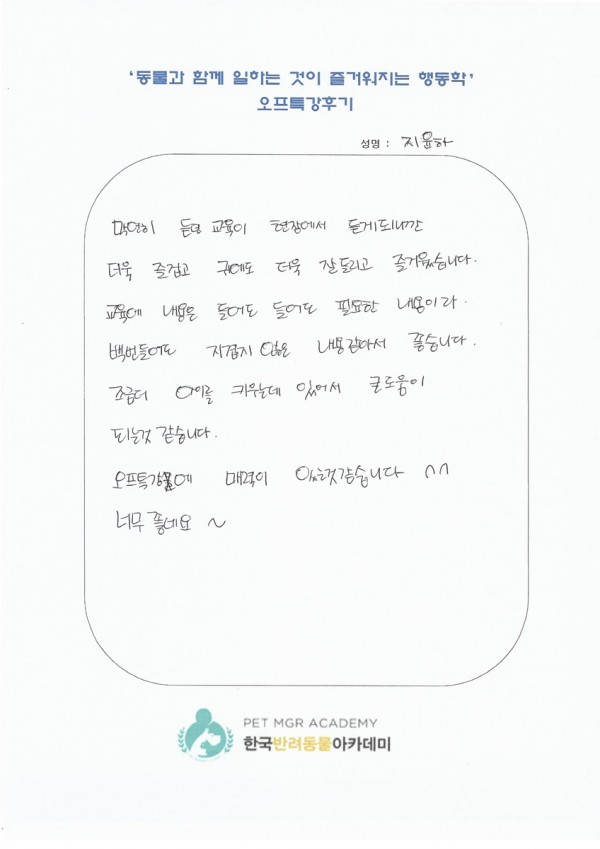 '동물과 함께 일하는 것이 즐거워지는 행동학'
오프특강후기
성명 : 지윤하
막연히 듣던 교육이 현장에서 듣게되니간
더욱 즐겁고 귀에도 더욱 잘들리고 즐거웠습니다.
교육에 내용은 들어도 들어도 필요한 내용이라.
백번들어도 지겹지 않은 내용같아서 좋습니다.
조금더 아이를 키우는데 있어서 큰도움이
되는것 같습니다.
오프특강에 매력이 있는것같습니다 ^^
너무 좋네요 ~
PET MGR ACADEMY
한국반려동물아카데미